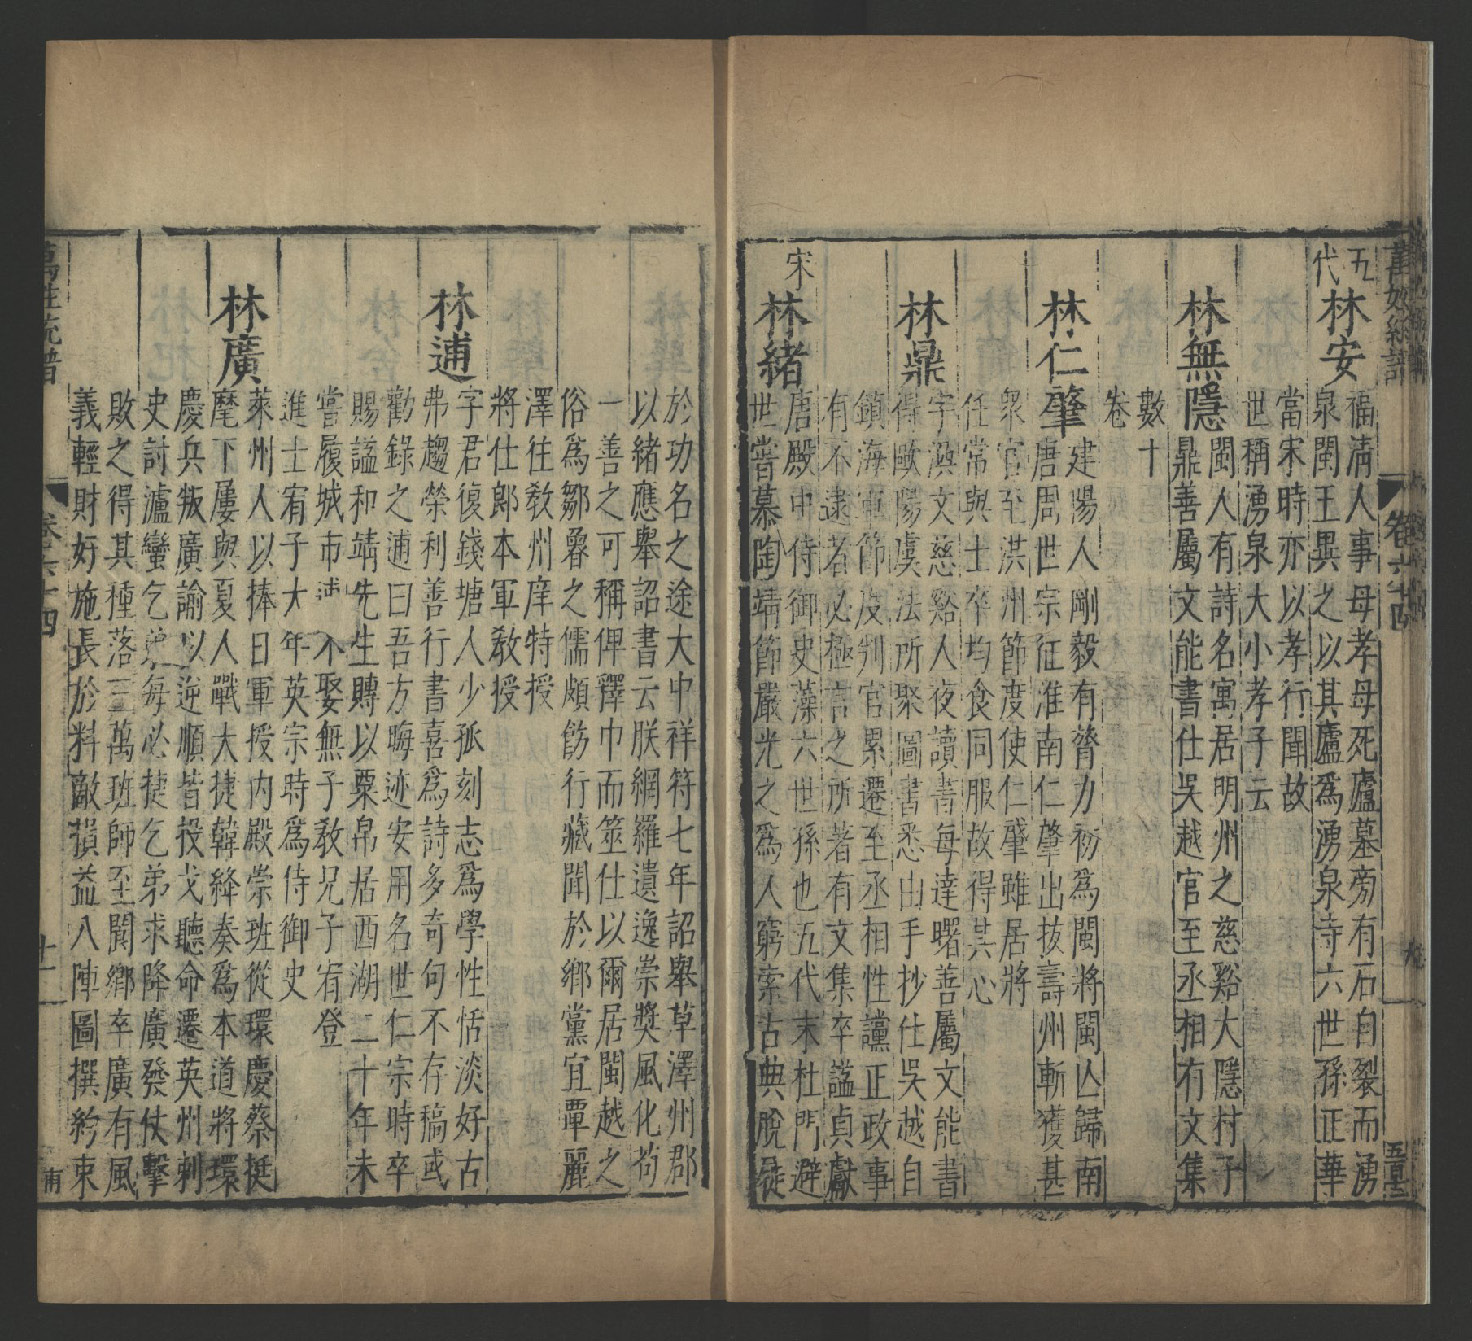 五
代
林安
福清人事母孝母死廬墓旁有石自裂而湧
泉閩王異之以其廬爲湧泉寺六世孫正華
當宋時亦以孝行聞故
世稱湧泉大小孝子云
林無隱
閩人有詩名寓居明州之慈谿大隱村子
鼎善屬文能書仕吳越官至丞相有文集
數十
卷
林仁肇
建陽人剛毅有膂力初爲閩將閩亾歸南
唐周世宗征淮南仁肇出抜壽州斬獲甚
衆官至洪州節度使仁肇雖居將
任常與士卒均食同服故得其心
林鼎
字滇文慈谿人夜讀書每達曙善屬文能書
得歐陽虞法所聚圖書悉由手抄仕吳越自
鎮海軍節度判官累遷至丞相性讜正政事
有不逮者必極言之所著有文集卒謚貞獻
宋
林緒
唐殿中侍御史藻六世孫也五代末杜門避
世嘗慕陶靖節嚴光之爲人窮索古典脫屣
於功名之途大中祥符七年詔舉草澤州郡
以緒應舉詔書云朕網羅遺逸崇獎風化茍
一善之可稱俾釋巾而筮仕以爾居閩越之
俗爲鄒魯之儒頗飭行藏聞於鄉黨宜覃麗
澤往敎州庠特授
將仕郎本軍敎授
林逋
字君復錢塘人少孤刻志爲學性恬淡好古
弗趨榮利善行書喜爲詩多奇句不存稿或
勸錄之逋曰吾方晦迹安用名世仁宗時卒
賜謚和靖先生賻以粟帛居西湖二十年未
嘗履城市逋不娶無子敎兄子宥登
進士宥子大年英宗時爲侍御史
林廣
萊州人以捧日軍授内殿崇班從環慶蔡挺
麾下屢與夏人戰大捷韓絳奏爲本道將環
慶兵叛廣諭以逆順皆投戈聽命遷英州刺
史討瀘蠻乞弟每必捷乞弟求降廣發伏擊
敗之得其種落三萬班師至閿鄉卒廣有風
義輕財好施長於料敵損益八陣圖撰約束
萬姓統譜
卷六十四
十一